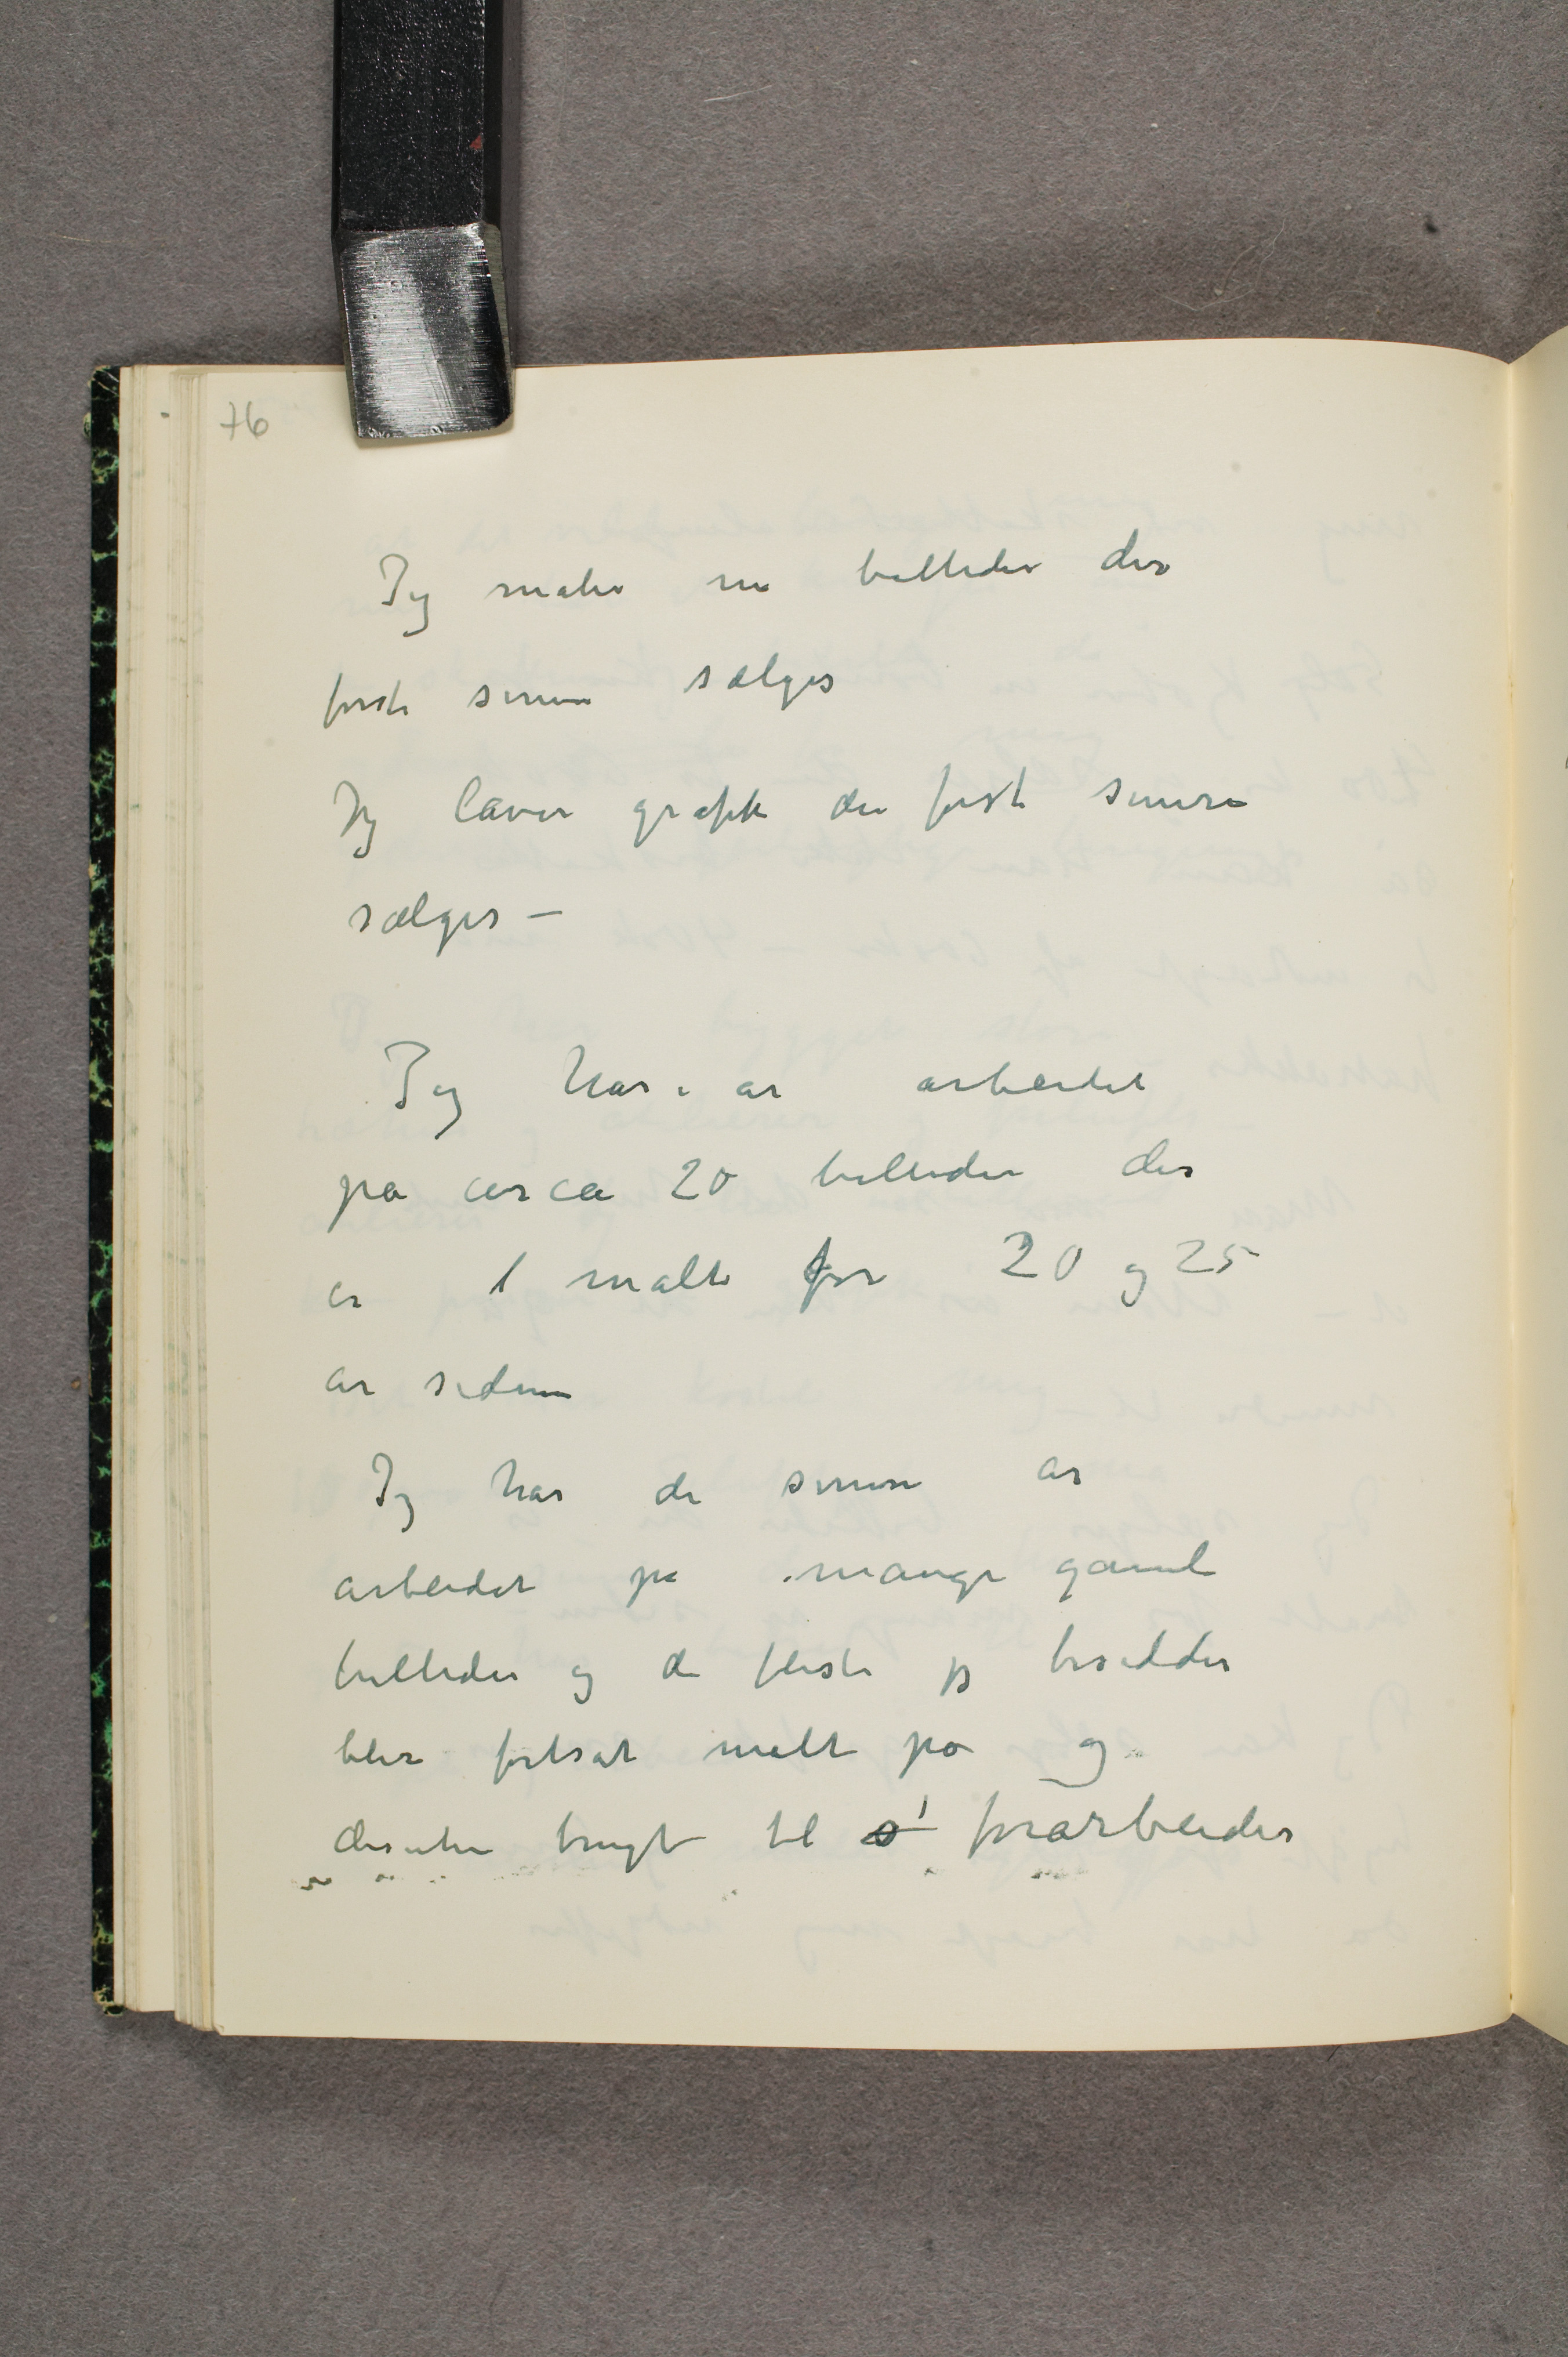 76
Jeg maler nu billeder der
først senere sælges
Jeg laver grafik der først senere
sælges –
Jeg har i år arbeidet
på circa 20 billeder der
er malte for 20 og 25
år siden
Jeg har de senere år
arbeidet på mange gamle
billeder og de fleste jeg besidder
blir fortsat malt på og
desuten brugt til forarbeider